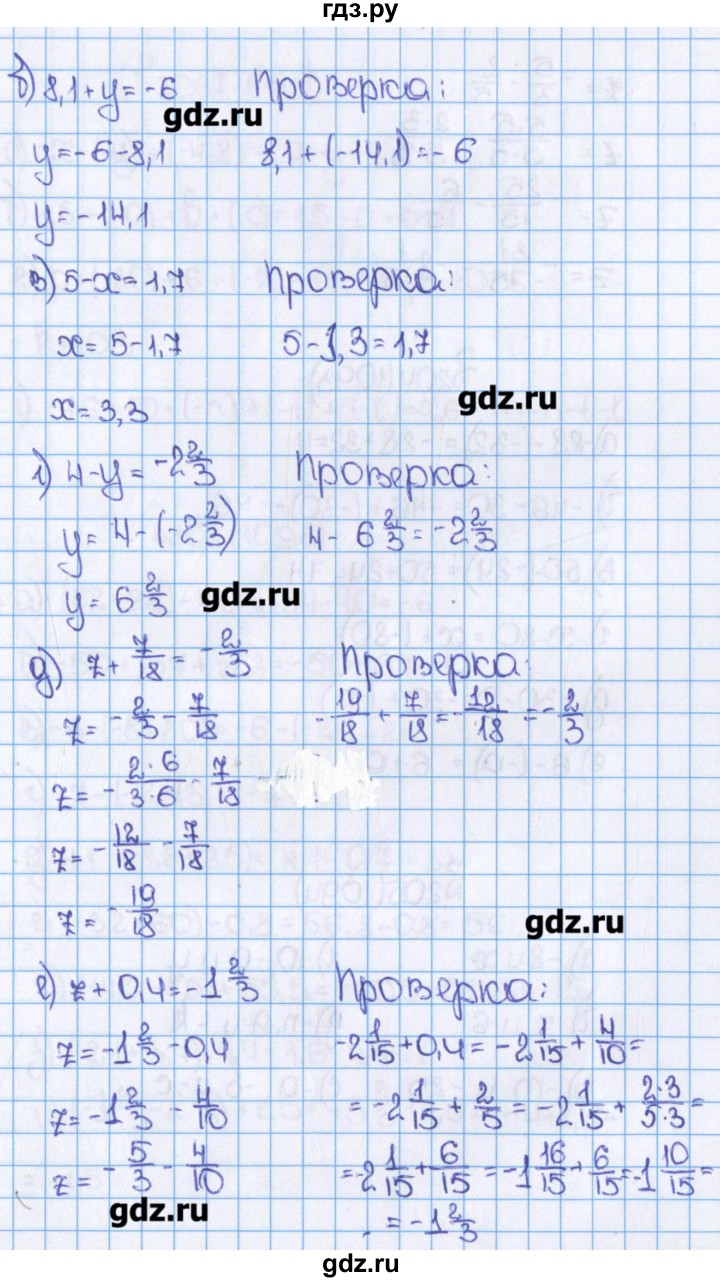 гдз.ру
б) 8,1+y=-6 Проверка:
gdz.ru
y=-6-8,1 8,1+(-14,1)=-6
y=-14,1
в) 5-x=1,7 Проверка:
x=5-1,7 5-1,3=1,7
gdz.ru
x=3,3
г) 4-y=-2 2/3 Проверка:
y=4-(-2 2/3) 4-6 2/3=-2 2/3
y=6 2/3 gdz.ru
д) z+7/18=-2/3 Проверка:
z=-2/3-7/18 -19/18+7/18=-12/18=-2/3
z=-2·6/3·6-7/18
z=-12/18-7/18
z=-19/18
gdz.ru
е) z+0,4=-1 2/3 Проверка:
z=-1 2/3-0,4 -2 1/15+0,4=-2 1/15+4/10=
z=-1 2/3-4/10 =-2 1/15+2/5=-2 1/15+2·3/5·3=
z=-5/3-4/10 =-2 1/15+6/15=-1 16/15+6/15=-1 10/15=
gdz.ru =-1 2/3
gdz.ru